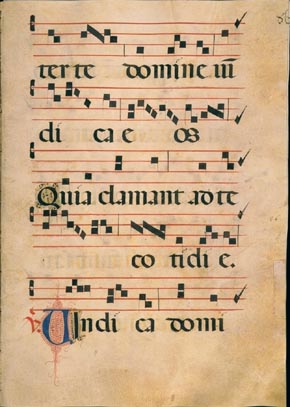 ter te domine iu
di ca e os
Quia clamant ad te
co tidi e.
V. Uindi ca domi